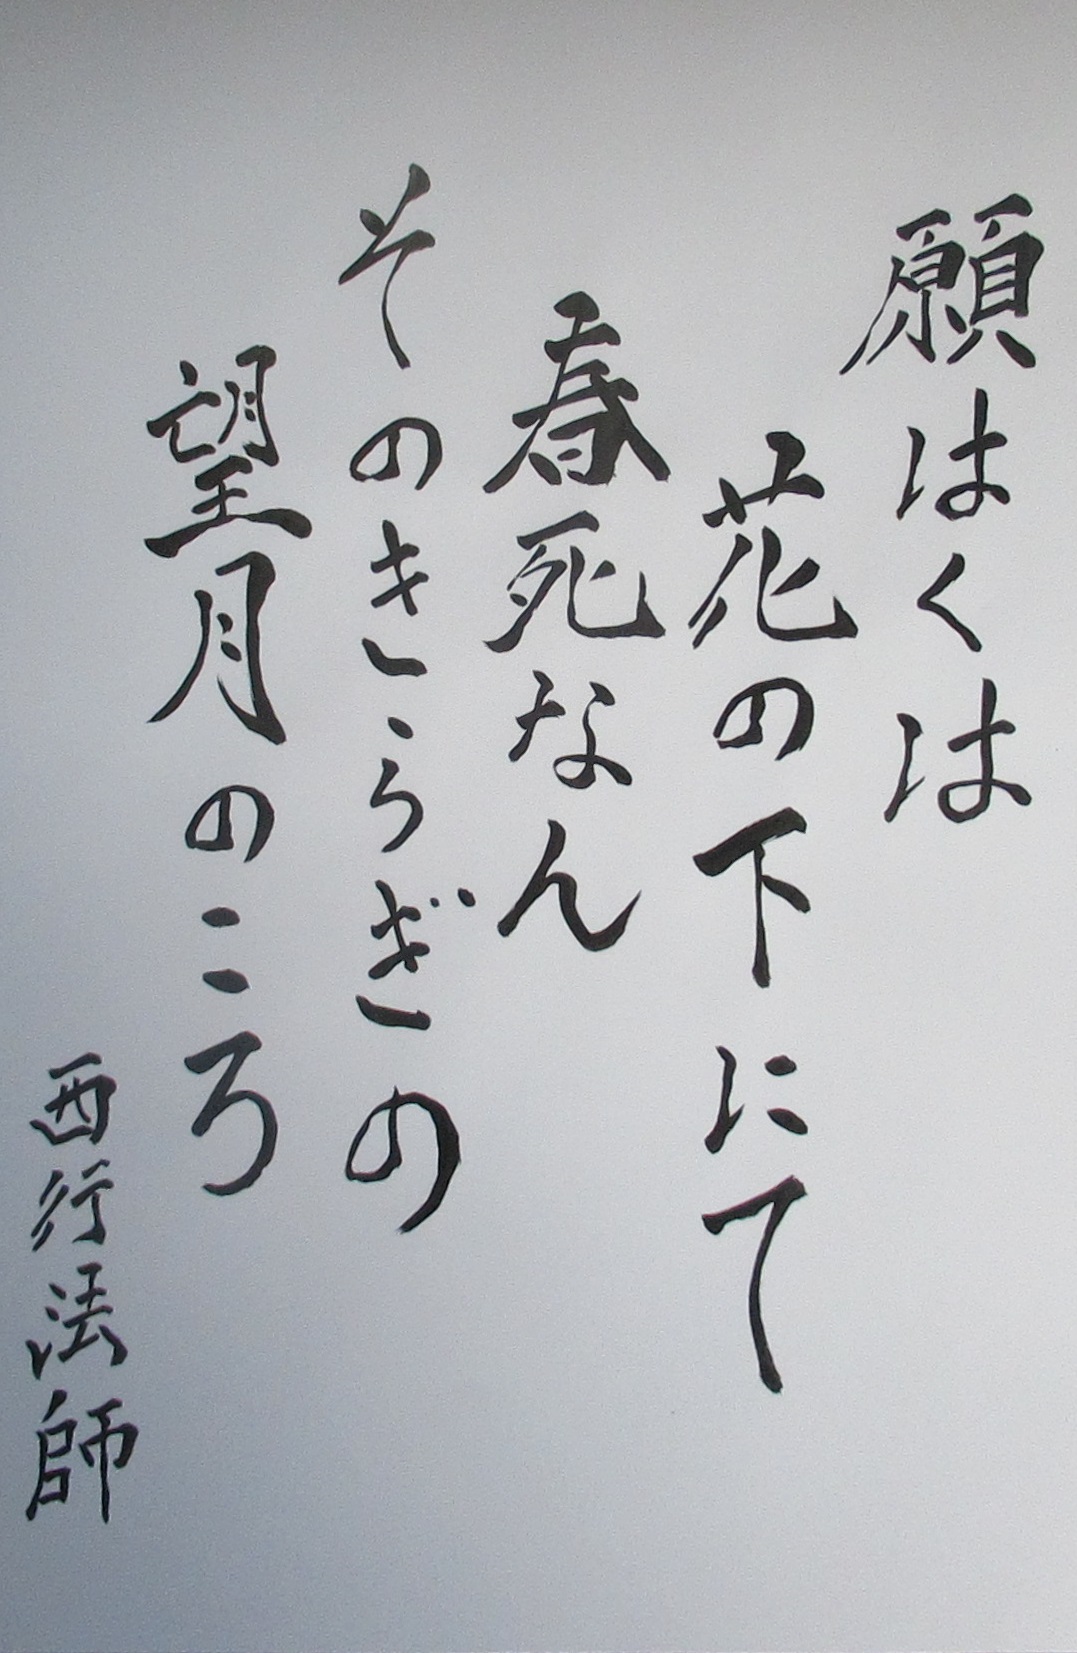 願はくは
花の下にて
春死なん
そのきらぎの
望月のころ
西行法師